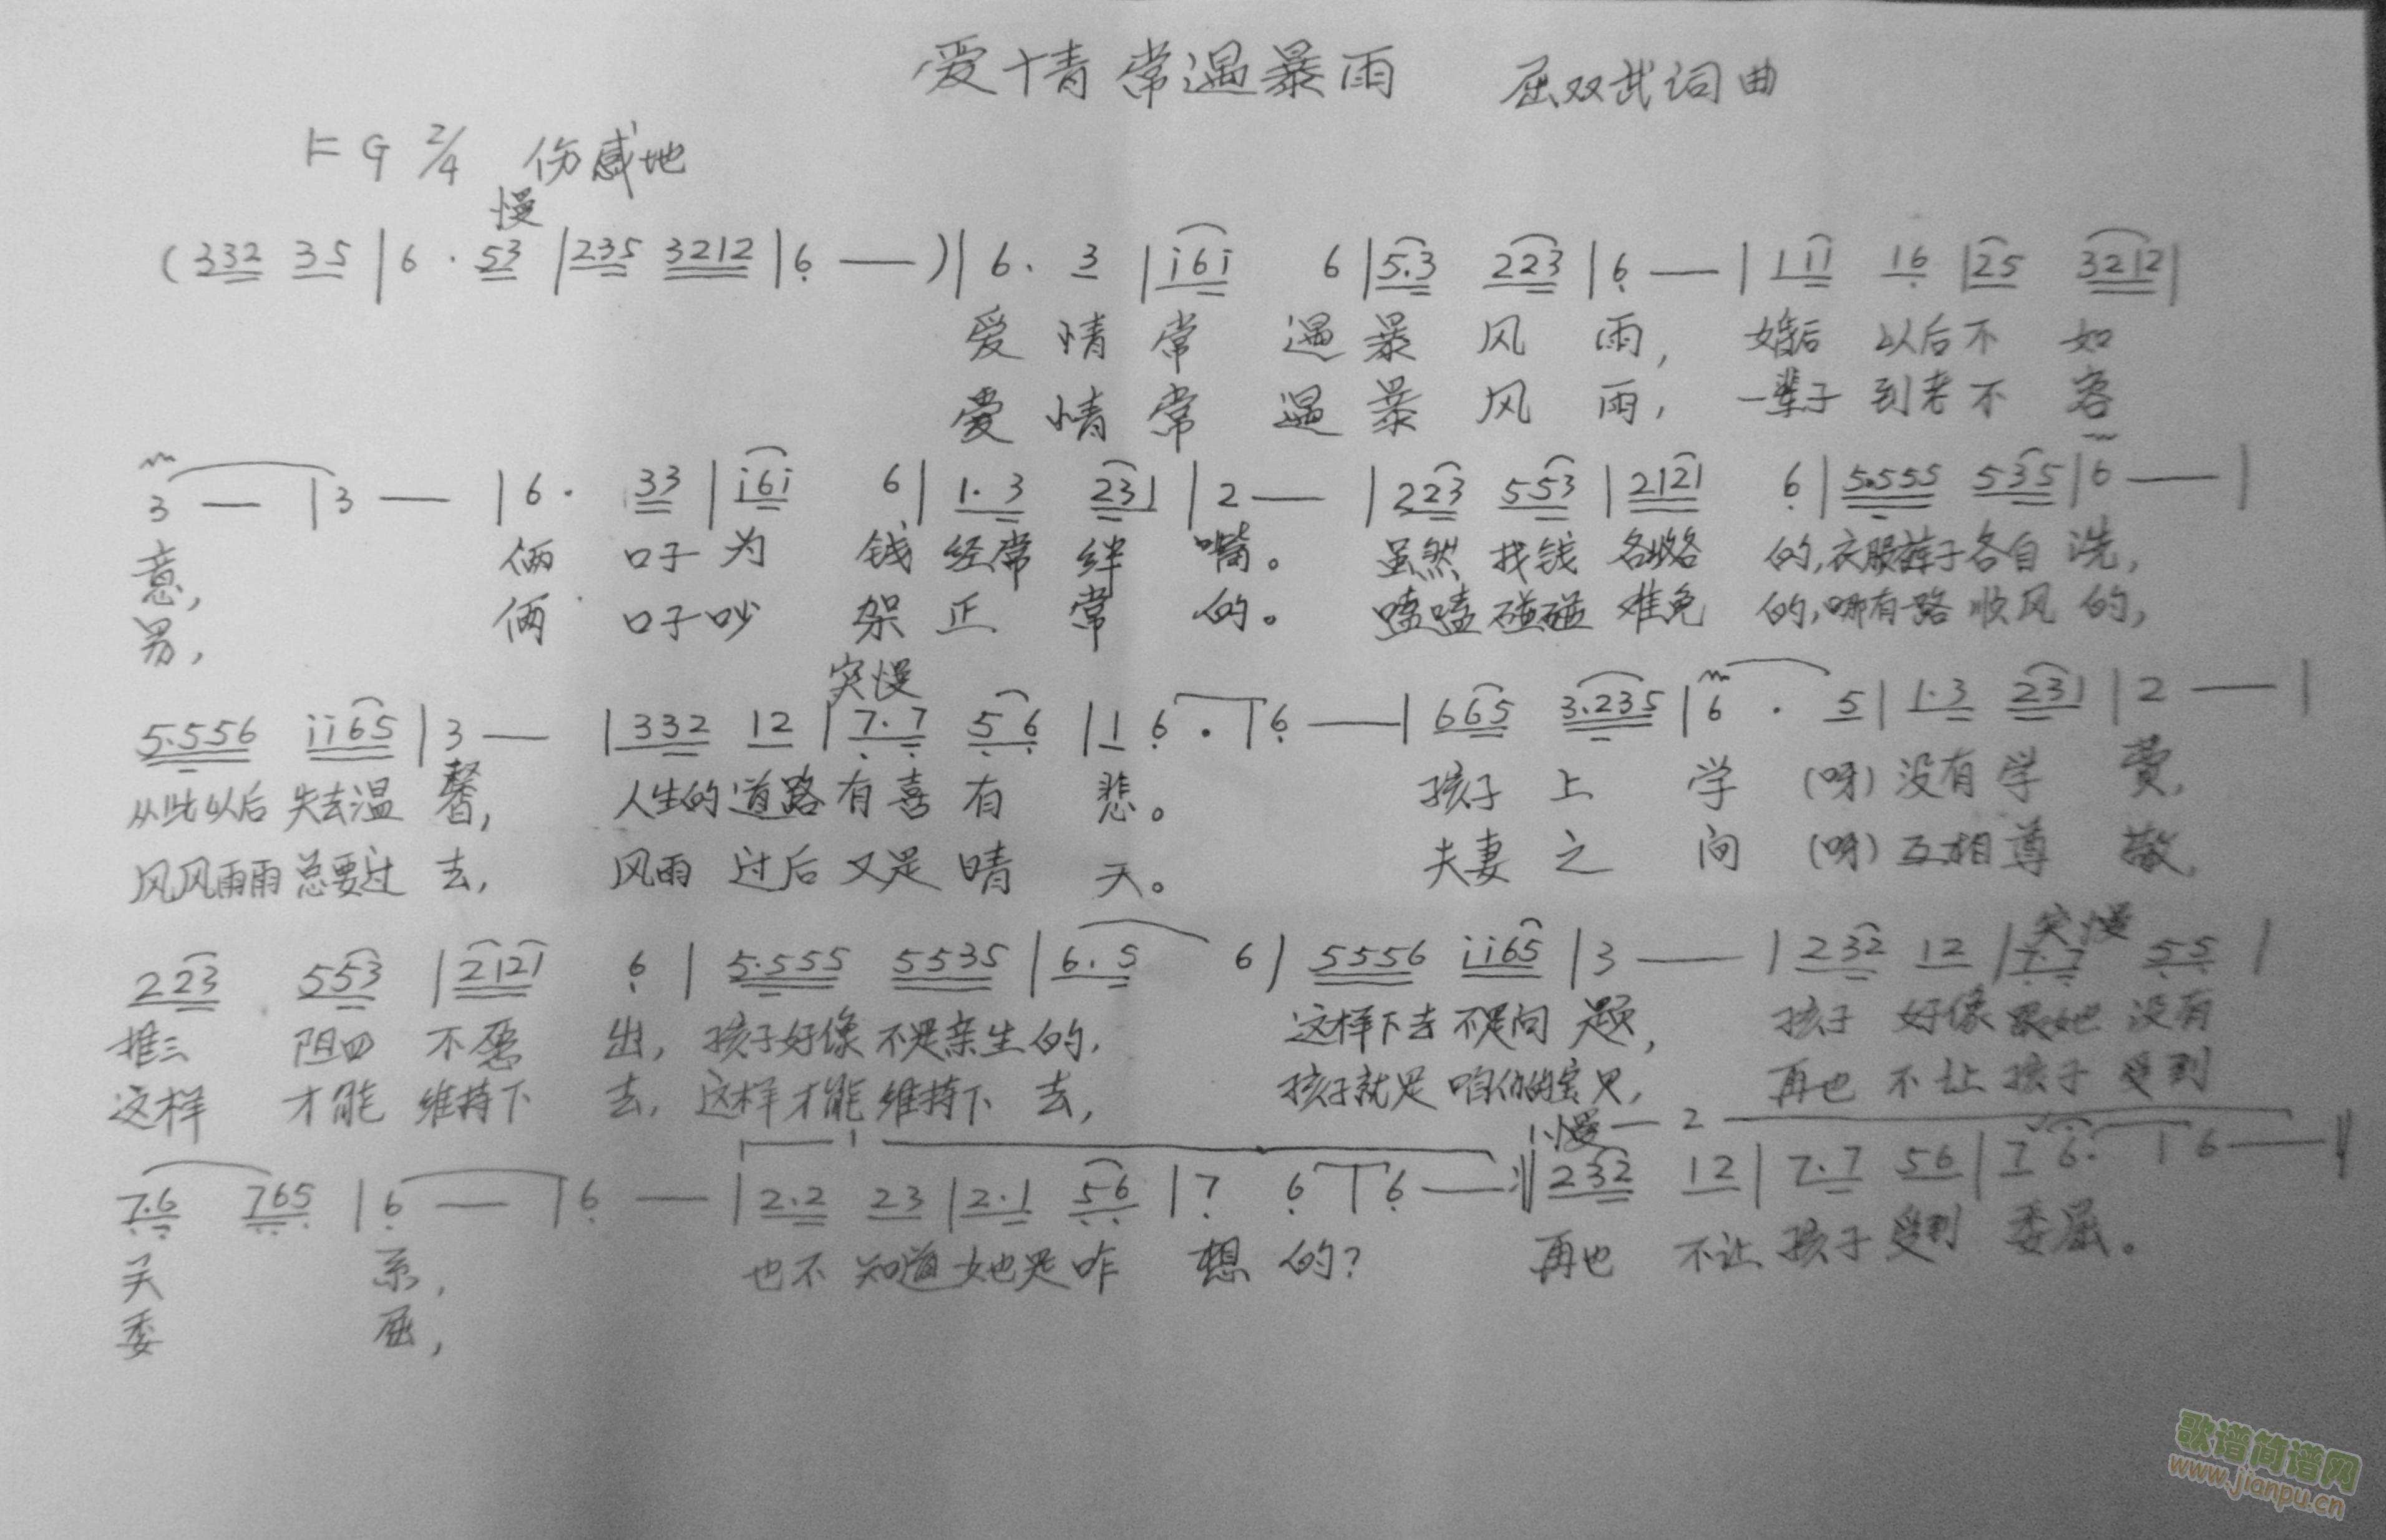 爱情常遇暴雨 屈双武词曲
1=G 2/4 伤感地
慢
(332 35 | 6 · 53 | 235 3212 | 6 — ) | 6 · 3 | i6i 6 | 5.3 223 | 6 — | 1ii 16 | 25 3212 |
爱情常遇暴风雨, 婚后以后不如
爱情常遇暴风雨, 一辈子到老不容
3 — | 3 — | 6 · 33 | i6i 6 | 1.3 231 | 2 — | 223 553 | 2121 6 | 5.555 535 | 6 — |
意, 俩口子为钱经常绊嘴。 虽然找钱各的,衣服裤子各自洗,
男, 俩口子吵架正常的。 嗑嗑碰碰难免的,哪有一路顺风的,
突慢
5.556 ii65 | 3 — | 332 12 | 7.7 56 | 1 6 · | 6 — | 665 3.235 | 6 · 5 | 1.3 231 | 2 — |
从此以后失去温馨, 人生的道路有喜有悲。 孩子上学(呀)没有学费,
风风雨雨总要过去, 风雨过后又是晴天。 夫妻之间(呀)互相尊敬,
突慢
223 553 | 2121 6 | 5.555 5535 | 6.5 6 | 5556 ii65 | 3 — | 232 12 | 7.7 55 |
推三阻四不愿出, 孩子好像不是亲生的, 这样下去不是问题, 孩子好像跟她没有
这样才能维持下去, 这样才能维持下去, 孩子就是咱们的宝贝, 再也不让孩子受到
1 慢 2
7.6 765 | 6 — | 6 — | 2.2 23 | 2.1 56 | 7 6 | 6 — :‖ 232 12 | 7.7 56 | 7 6· | 6 — ‖
关系, 也不知道她是咋想的? 再也不让孩子受到委屈。
委屈,
歌谱简谱网
www.jianpu.cn